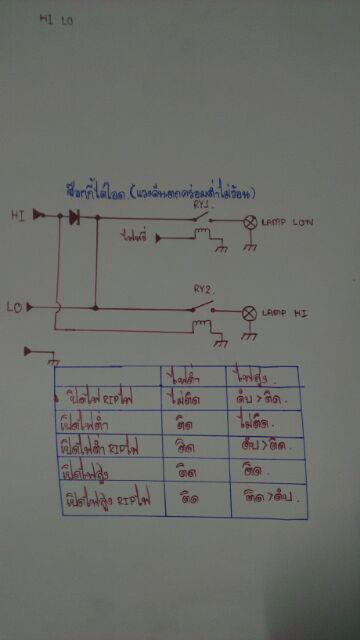 HI LO
ซีเกกี้ไดโอด. (แรงดันตกคร่อมต่ำไม่ร้อน)
RY1.
HI
LAMP LOW
ไฟหรี่
RY2.
LO
LAMP HI
ไฟต่ำ ไฟสูง.
เปิดไฟ RIPไฟ ไม่ติด ดับ>ติด.
เปิดไฟต่ำ ติด ไม่ติด.
เปิดไฟต่ำ RIPไฟ ติด ดับ>ติด.
เปิดไฟสูง ติด ติด.
เปิดไฟสูง RIPไฟ ติด ติด>ดับ.